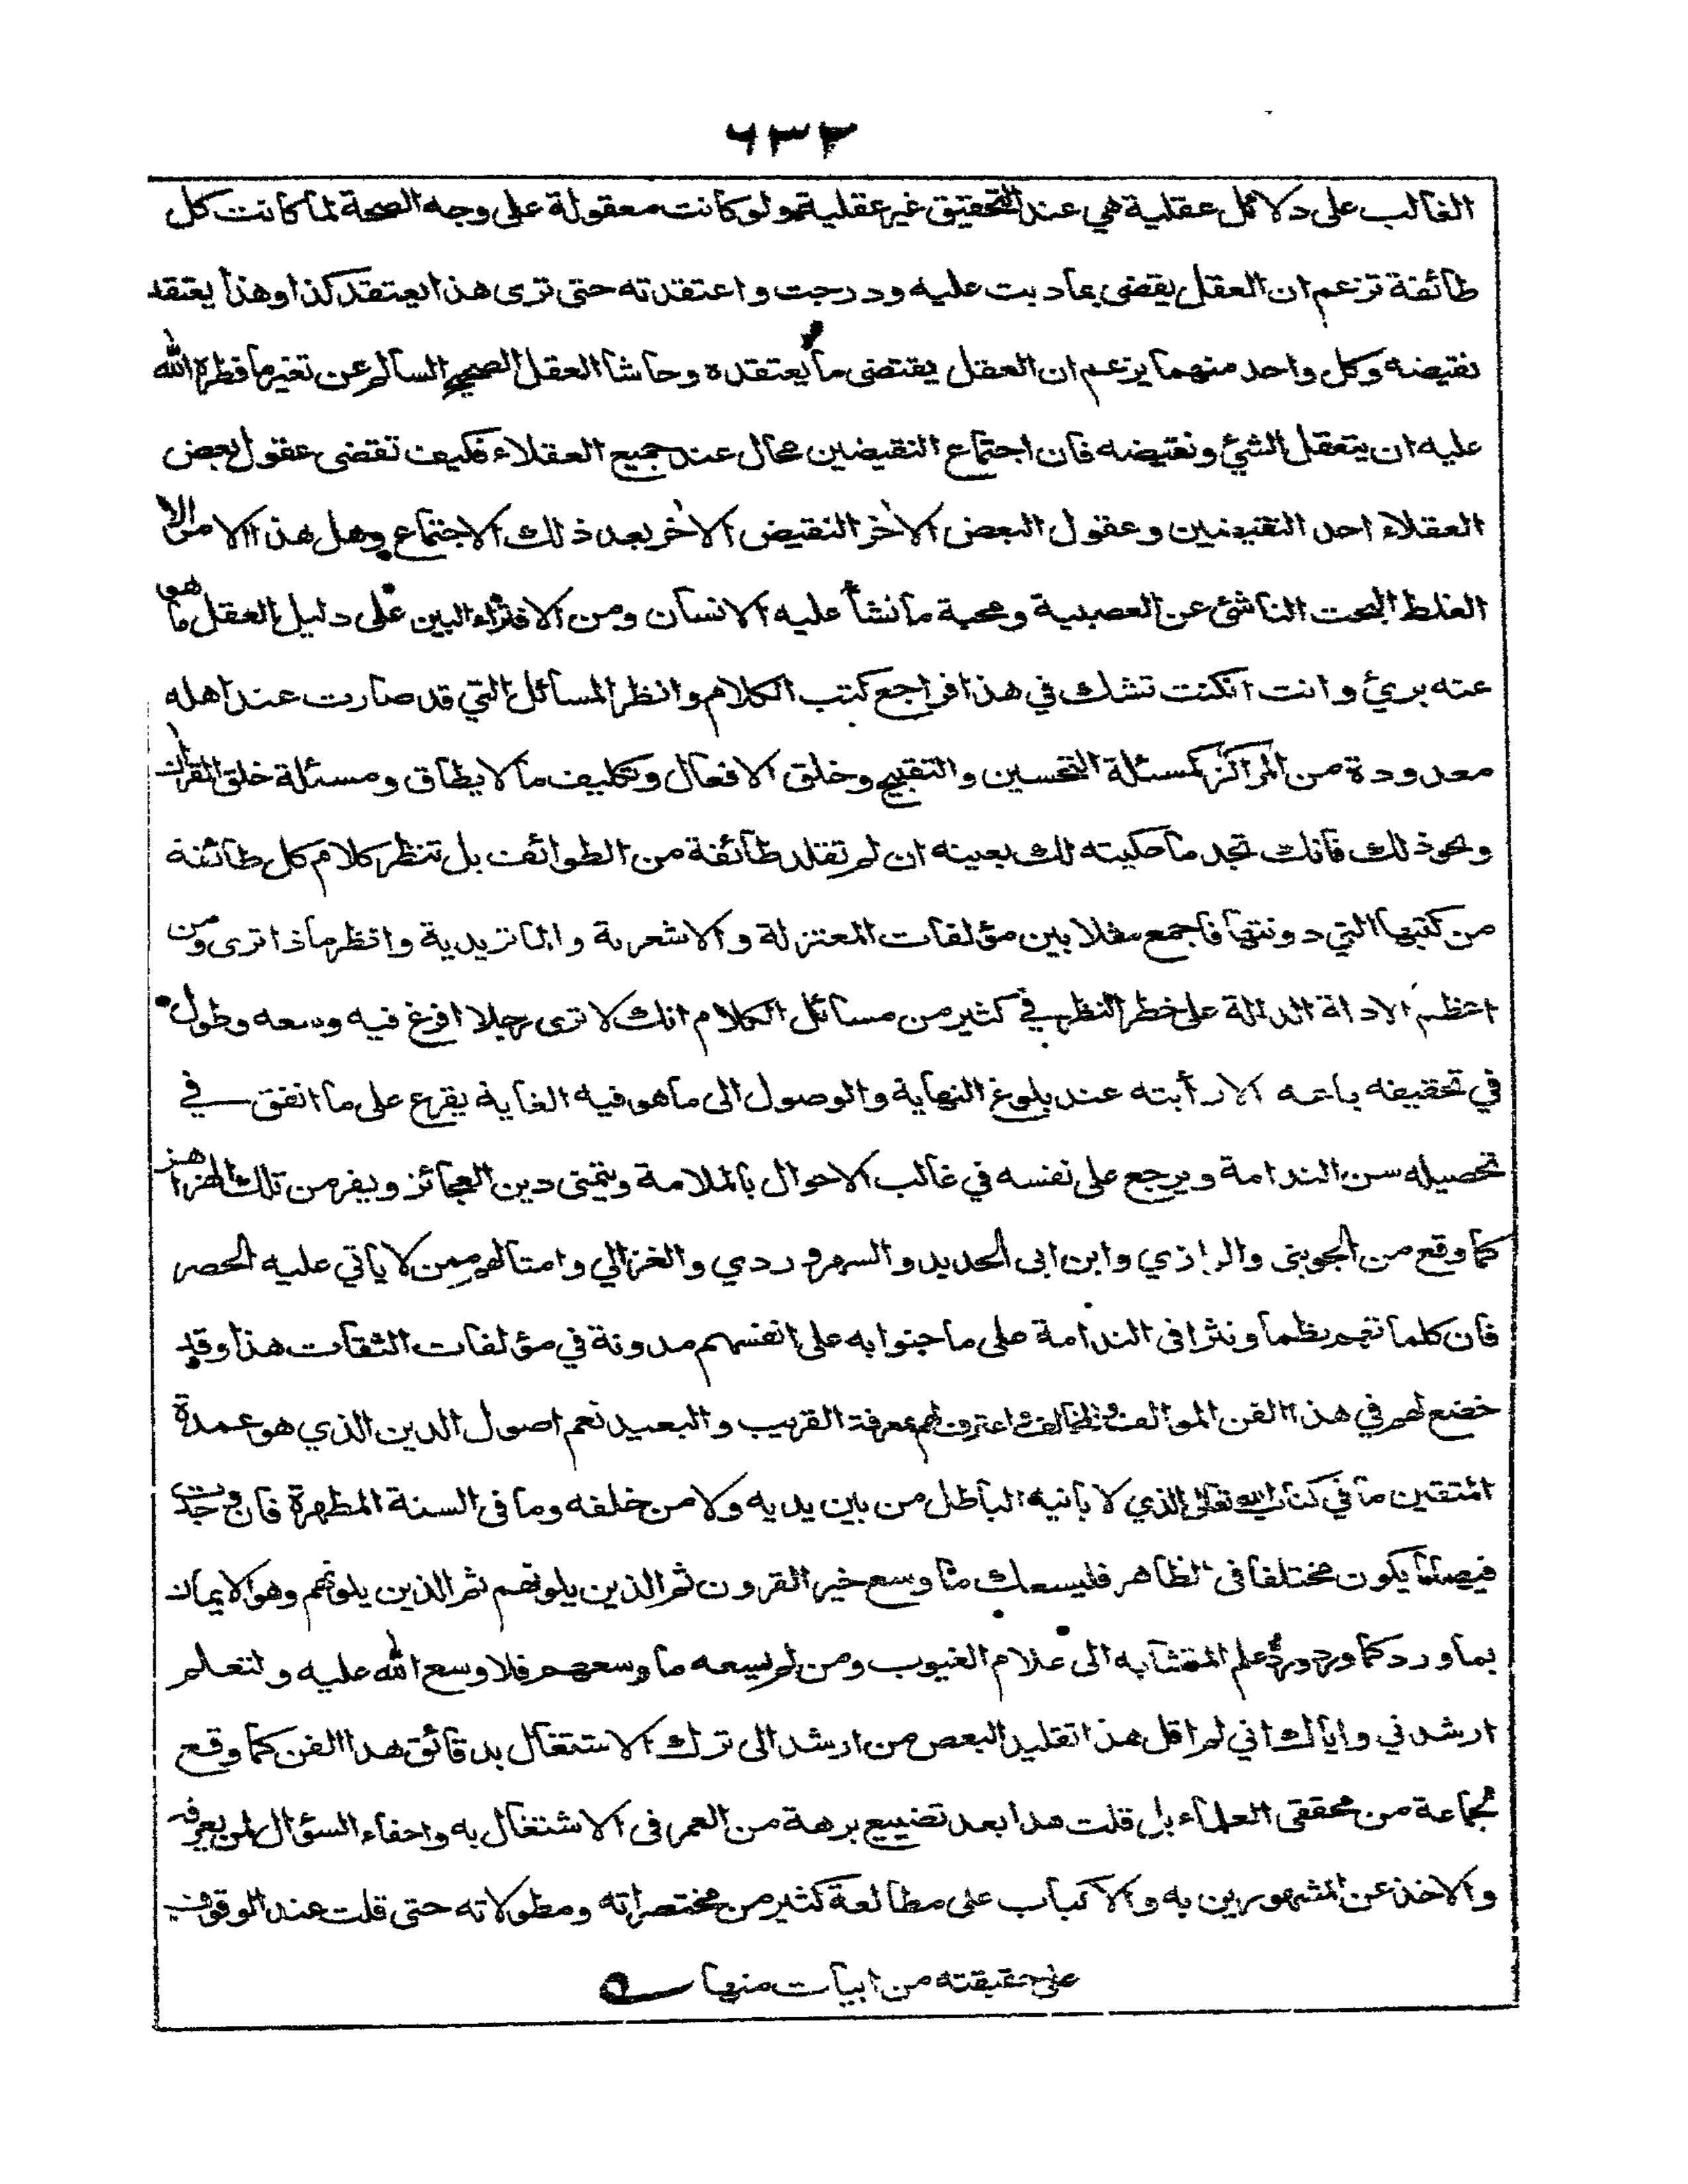 ٦٣٢
الغالب على دلائل عقلية هي عند التحقيق غير عقلية ولو كانت معقولة على وجه الصحة لما كانت كل
طائفة تزعم ان العقل يقضى بما دبت عليه ودرجت واعتقدته حتى ترى هذا يعتقد كذا وهذا يعتقد
نقيضه وكل واحد منهما يزعم ان العقل يقتضى ما يعتقده وحاشا العقل الصحيح السالم عن تغير ما فطره الله
عليه ان يتعقل الشئ ونقيضه فان اجتماع النقيضين محال عند جميع العقلاء فكيف تقضى عقول بعض
العقلاء احد النقيضين وعقول البعض الاخر النقيض الاخر بعد ذلك الاجتماع وهل هذا الامر الا
الغلط البحت الناشئ عن العصبية ومحبة ما نشأ عليه الانسان ومن الافتراء البين على دليل العقل ما هو
عنه برئ وانت ان كنت تشك في هذا فراجع كتب الكلام وانظر المسائل التي قد صارت عند اهله
معدودة من المراكز كمسئلة التحسين والتقبيح وخلق الافعال وتكليف ما لا يطاق ومسئلة خلق القران
ونحو ذلك فانك تجد ما حكيته لك بعينه ان لم تقلد طائفة من الطوائف بل تنظر كلام كل طائفة
من كتبها التي دونتها فاجمع مثلا بين مؤلفات المعتزلة والاشعرية والماتريدية وانظر ماذا ترى ومن
اعظم الادلة الدالة على خطر النظر في كثير من مسائل الكلام انك لا ترى رجلا افرغ فيه وسعه وطول
في تحقيقه باعه الا رأيته عند بلوغ النهاية والوصول الى ما هو فيه الغاية يقرع على ما انفق في
تحصيله سن الندامة ويرجع على نفسه في غالب الاحوال بالملامة ويتمنى دين العجائز ويفر من تلك الهزاهز
كما وقع من الجوينى والرازي وابن ابى الحديد والسهروردي والغزالي وامثالهم ممن لا ياتي عليه الحصر
فان كلماتهم نظما ونثرا فى الندامة على ما جنوا به على انفسهم مدونة في مؤلفات الثقات هذا وقد
خضع لهم في هذا الفن الموالف والمخالف واعترف لهم بمعرفته القريب والبعيد نعم اصول الدين الذي هو عمدة
المتقين ما في كتاب الله تعالى الذي لا يأتيه الباطل من بين يديه ولا من خلفه وما فى السنة المطهرة فان وجدت
فيهما ما يكون مختلفا فى الظاهر فليسعك ما وسع خير القرون ثم الذين يلونهم ثم الذين يلونهم وهو الايمان
بما ورد كما ورد ورد علم المتشابه الى علام الغيوب ومن لم يسعه ما وسعهم فلا وسع الله عليه ولتعلم
ارشدني واياك اني لم اقل هذا تقليد البعض من ارشد الى ترك الاشتغال بدقائق هذا الفن كما وقع
لجماعة من محققى العلماء بل قلت هذا بعد تضييع برهة من العمر فى الاشتغال به واحفاء السؤال لمن يعرفه
والاخذ عن المشهورين به والاكباب على مطالعة كثير من مختصراته ومطولاته حتى قلت عند الوقوف
على حقيقته من ابيات منها